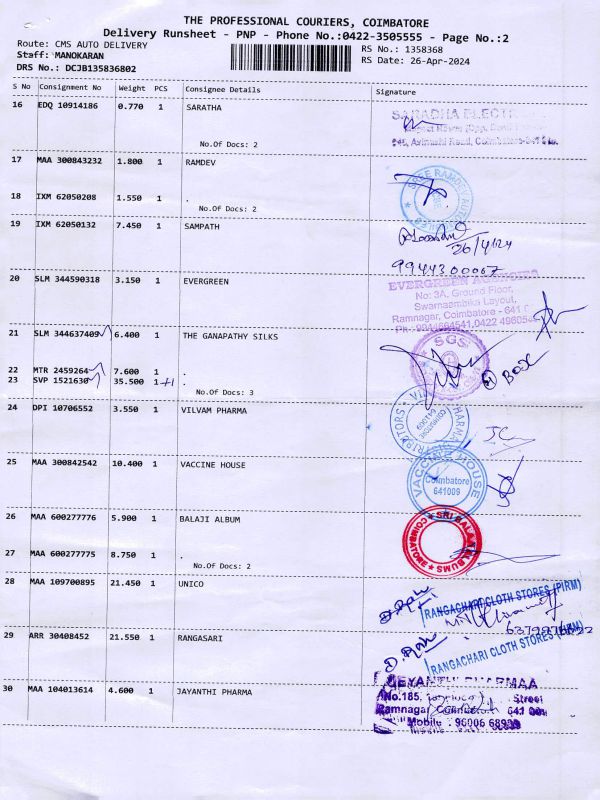 THE PROFESSIONAL COURIERS, COIMBATORE
Delivery Runsheet - PNP - Phone No.:0422-3505555 - Page No.:2
Route: CMS AUTO DELIVERY
Staff: MANOKARAN
DRS No.: DCJB135836802
RS No.: 1358368
RS Date: 26-Apr-2024
S No Consignment No Weight PCS Consignee Details Signature
16 EDQ 10914186 0.770 1 SARATHA
SARADHA
No.Of Docs: 2
17 MAA 300843232 1.800 1 RAMDEV
18 IXM 62050208 1.550 1 .
No.Of Docs: 2
19 IXM 62050132 7.450 1 SAMPATH
26/4/24
9944300067
20 SLM 344590318 3.150 1 EVERGREEN
EVERGREEN AGENCIES
No: 3A, Ground Floor,
Swarnaambika Layout,
Ramnagar, Coimbatore - 641 0
21 SLM 344637409 6.400 1 THE GANAPATHY SILKS
SGS
22 MTR 2459264 7.600 1 .
23 SVP 1521630 35.500 1 +1 .
No.Of Docs: 3
4 BOX
24 DPI 10706552 3.550 1 VILVAM PHARMA
COIMBATORE
641009
25 MAA 300842542 10.400 1 VACCINE HOUSE
VACCINE HOUSE
Coimbatore
641009
26 MAA 600277776 5.900 1 BALAJI ALBUM
SRI BALAJI ALBUMS
COIMBATORE
27 MAA 600277775 8.750 1 .
No.Of Docs: 2
28 MAA 109700895 21.450 1 UNICO
RANGACHARI CLOTH STORES (PIRM)
29 ARR 30408452 21.550 1 RANGASARI
RANGACHARI CLOTH STORES
30 MAA 104013614 4.600 1 JAYANTHI PHARMA
JEYANTHI PHARMAA
No.185, Street
Ramnagar Coimbatore 641 009
Mobile : 96006 68999